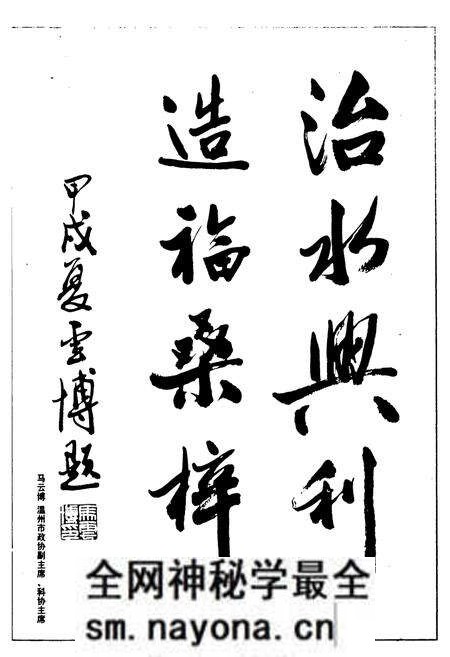 治水興利
造福桑梓
甲戌夏雲博題
马云博 温州市政协副主席、科协主席
全网神秘学最全
sm.nayona.cn